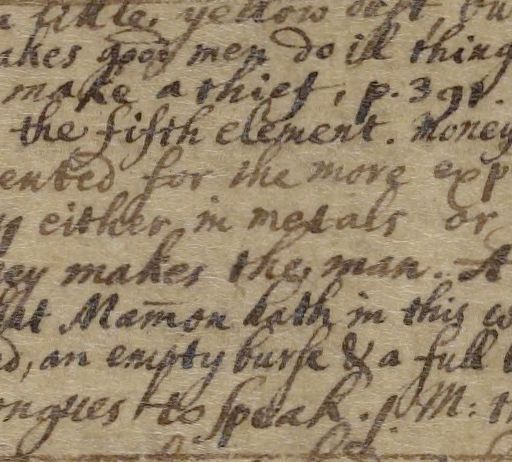 a little, yellow dust, bu
akes good men do ill thing
make a thief, p. 391.
the fifth element. Money
ented for the more exp
g either in metals or
ey makes the man. A
at Mam̄on hath in this w
d, an empty purse & a full
ongues to speak. J. M: th